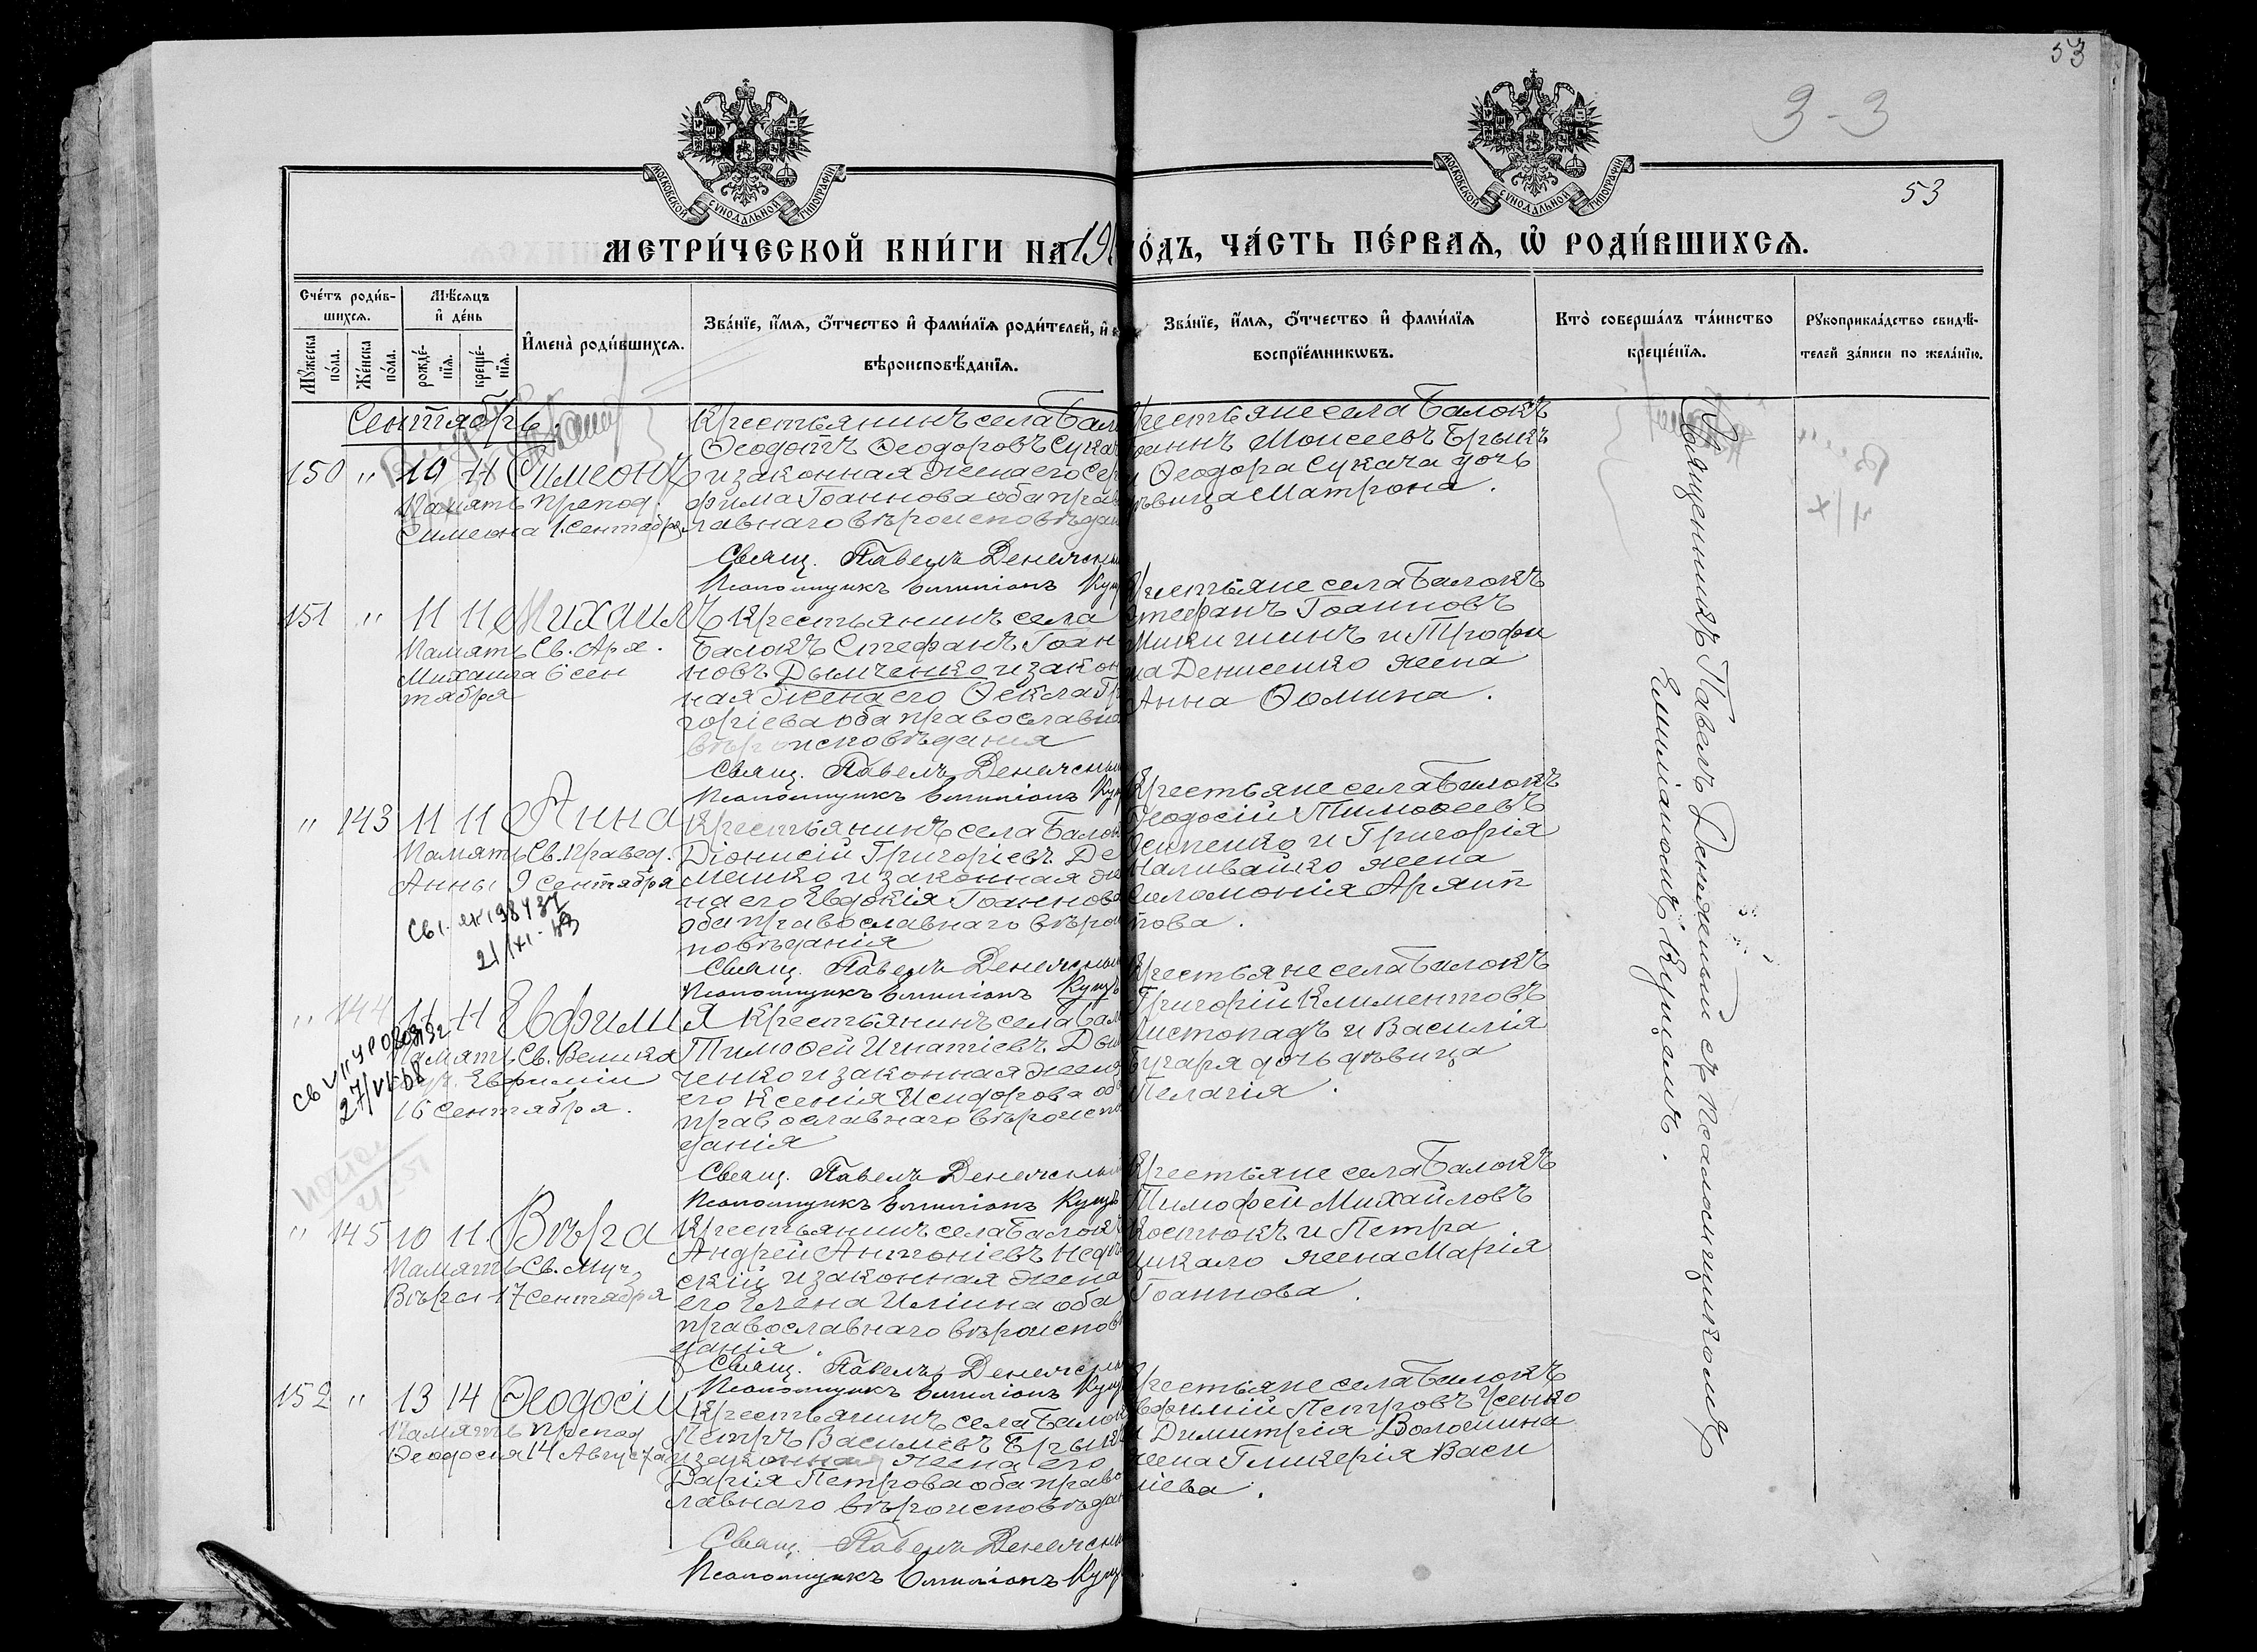 53
3-3
МОСКОВСКОЙ СѴНОДАЛЬНОЙ ТИПОГРАФІИ
МОСКОВСКОЙ СѴНОДАЛЬНОЙ ТИПОГРАФІИ
53
МЕТРИ́ЧЕСКОЙ КНИ́ГИ НА 19
ОДЪ, ЧА́СТЬ ПЕ́РВАѦ, Ѡ҆ РОДИ́ВШИХСѦ.
Сче́тъ роди́в-
шихсѧ.
Мѣ́сѧцъ
и҆ де́нь
И҆мена̀ роди́вшихсѧ.
Зва́нїе, и҆́мѧ, ѻ҆́тчество и҆ фами́лїѧ роди́телей, и҆
вѣроисповѣ́данїѧ.
Мꙋ́жеска по́ла.
Же́нска по́ла.
рожде́-нїѧ.
креще́-нїѧ.
Зва́нїе, и҆́мѧ, ѻ҆́тчество и҆ фами́лїѧ
воспрїе́мникѡвъ.
Кто̀ соверша́лъ та́инство
креще́нїѧ.
Рꙋкоприкла́дство свидѣ́-
телей за́писи по жела́нїю.
Сентябрь
150 " 10 11 Симеонъ
Память препод.
Симеона 1 Сентября
Крестьянинъ села Бал
Ѳеодотъ Ѳеодоровъ Сука
и законная жена его Сер
фима Іоаннова оба прав
лавнаго вѣроисповѣдан
Свящ. Павелъ
Псаломщикъ Емиліанъ Куц
Крестьяне села Балокъ
Іоаннъ Моисеевъ Брыкъ
и Ѳеодора Сукача дочь
дѣвица Матрона.
151 " 11 11 Михаилъ
Память Св. Арх.
Михаила 6 Сен
тября
Крестьянинъ села
Балокъ Стефанъ Іоан
новъ Дымченко и закон
ная жена его Ѳекла Гр
горіева оба православна
вѣроисповѣданія
Свящ. Павелъ
Псаломщикъ Емиліанъ Куц
Крестьяне села Балокъ
Стефанъ Іоанновъ
Микитинъ и Трофи
ма Денисенко жена
Анна Ѳомина.
" 143 11 11 Анна
Память Св. Правед.
Анны 9 Сентября
Крестьянинъ села Балок
Діонисій Григоріевъ Де
менко и законная же
на его Евдокія Іоаннова
оба православнаго вѣрои
повѣданія
Свящ. Павелъ
Псаломщикъ Емиліанъ Куцъ
Крестьяне села Балокъ
Ѳеодосій Тимоѳеевъ
Осипенко и Григорія
Наливайко жена
Соломонія Архип
пова.
" 144 11 11 Евфимія
Память Св. Велико
муч. Евфиміи
16 Сентября.
27/VI 68
Крестьянинъ села Бал
Тимоѳей Игнатіевъ Дым
ченко и законная жена
его Ксенія Исидорова об
православнаго вѣроиспо
данія
Свящ. Павелъ
Псаломщикъ Емиліанъ Куцъ
Крестьяне села Балокъ
Григорій Климентовъ
Листопадъ и Василія
Бугаря дочь дѣвица
Пелагія.
" 145 10 11 Вѣра
Память Св. Муч.
Вѣры 17 Сентября
Крестьянинъ села Балокъ
Андрей Антоніевъ
скій и законная жена
его Елена Иліина оба
православнаго вѣроисповѣ
данія.
Свящ. Павелъ
Псаломщикъ Емиліанъ Куц
Крестьяне села Балокъ
Тимофей Михайловъ
Костюкъ и Петра
Цикало жена Марія
Іоаннова.
152 " 13 14 Ѳеодосій
Память препод
Ѳеодосія 14 Августа
Крестьянинъ села Балок
Петръ Василіевъ Брыкъ
и законная жена его
Дарія Петрова оба право
лавнаго вѣроисповѣдан
Свящ. Павелъ
Псаломщикъ Емиліанъ Куц
Крестьяне села Балокъ
Евфимій Петровъ Усенко
и Димитрія Волошина
жена Гликерія Васи
ліева.
Священникъ Павелъ съ псаломщикомъ
Емиліаномъ Куцемъ.